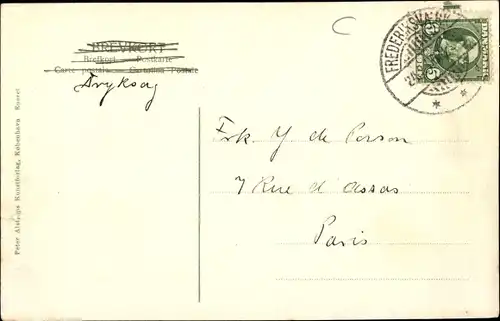 BREVKORT
Brefkort Postkarte
Carte postale Cartolina Postale
Tryksag
Frk. Y de Person
7 Rue d'assas
Paris
Peter Alstrups Kunstforlag, København Eneret
FREDERIKSHAVN